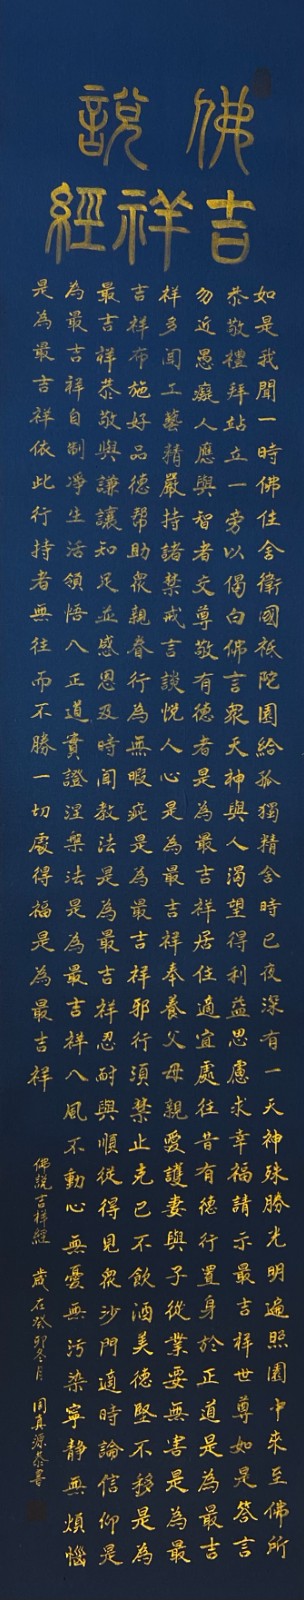 佛說
吉祥經
如是我聞一時佛住舍衛國祇陀園給孤獨精舍時已夜深有一天神殊勝光明遍照園中來至佛所
恭敬禮拜站立一旁以偈白佛言眾天神與人渴望得利益思慮求幸福請示最吉祥世尊如是答言
勿近愚癡人應與智者交尊敬有德者是為最吉祥居住適宜處往昔有德行置身於正道是為最吉
祥多聞工藝精嚴持諸禁戒言談悅人心是為最吉祥奉養父母親愛護妻與子從業要無害是為最
吉祥布施好品德帮助眾親眷行為無暇疵是為最吉祥邪行須禁止克己不飲酒美德堅不移是為
最吉祥恭敬與謙讓知足並感恩及時聞教法是為最吉祥忍耐與順從得見眾沙門適時論信仰是
為最吉祥自制淨生活領悟八正道實證涅槃法是為最吉祥八風不動心無憂無污染寧靜無煩惱
是為最吉祥依此行持者無往而不勝一切處得福是為最吉祥
佛說吉祥經 歲在癸卯冬月 真源恭書